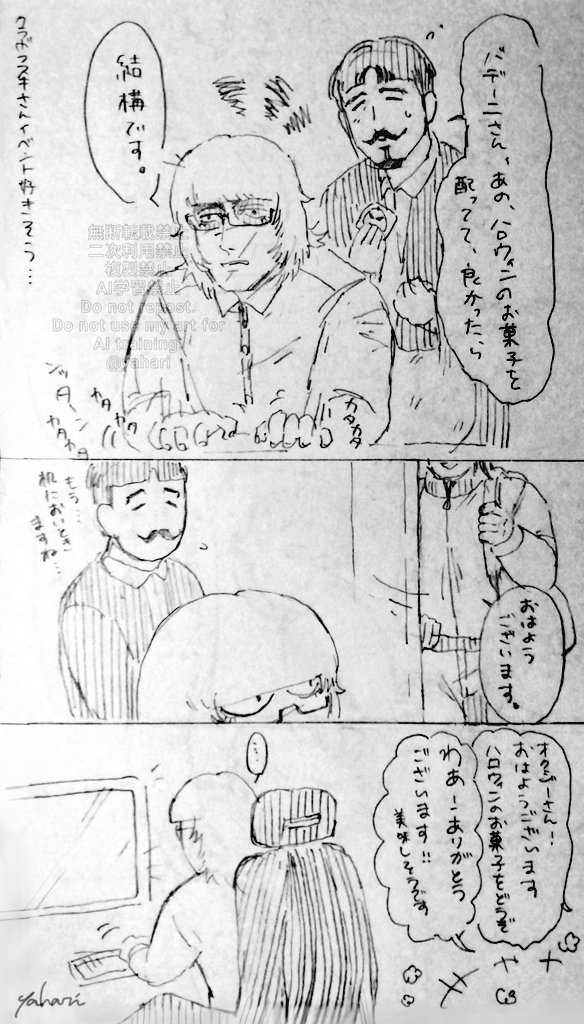 バデーニさん、あの、ハロウィンのお菓子を
配ってて、良かったら
結構です。
クラボフスキさんイベント好きそう…
無断転載禁止
二次利用禁止
複製禁止
AI学習禁止
Do not repost.
Do not use my art for
AI training.
@yahari
カタカタ
カタカタ
ッターン
カタカタ
おはよう
ございます。
もう…
机においとき
ますね…
オクジーさん!
おはようございます
ハロウィンのお菓子をどうぞ
わあーありがとう
ございます!!
美味しそうです
…
yahari